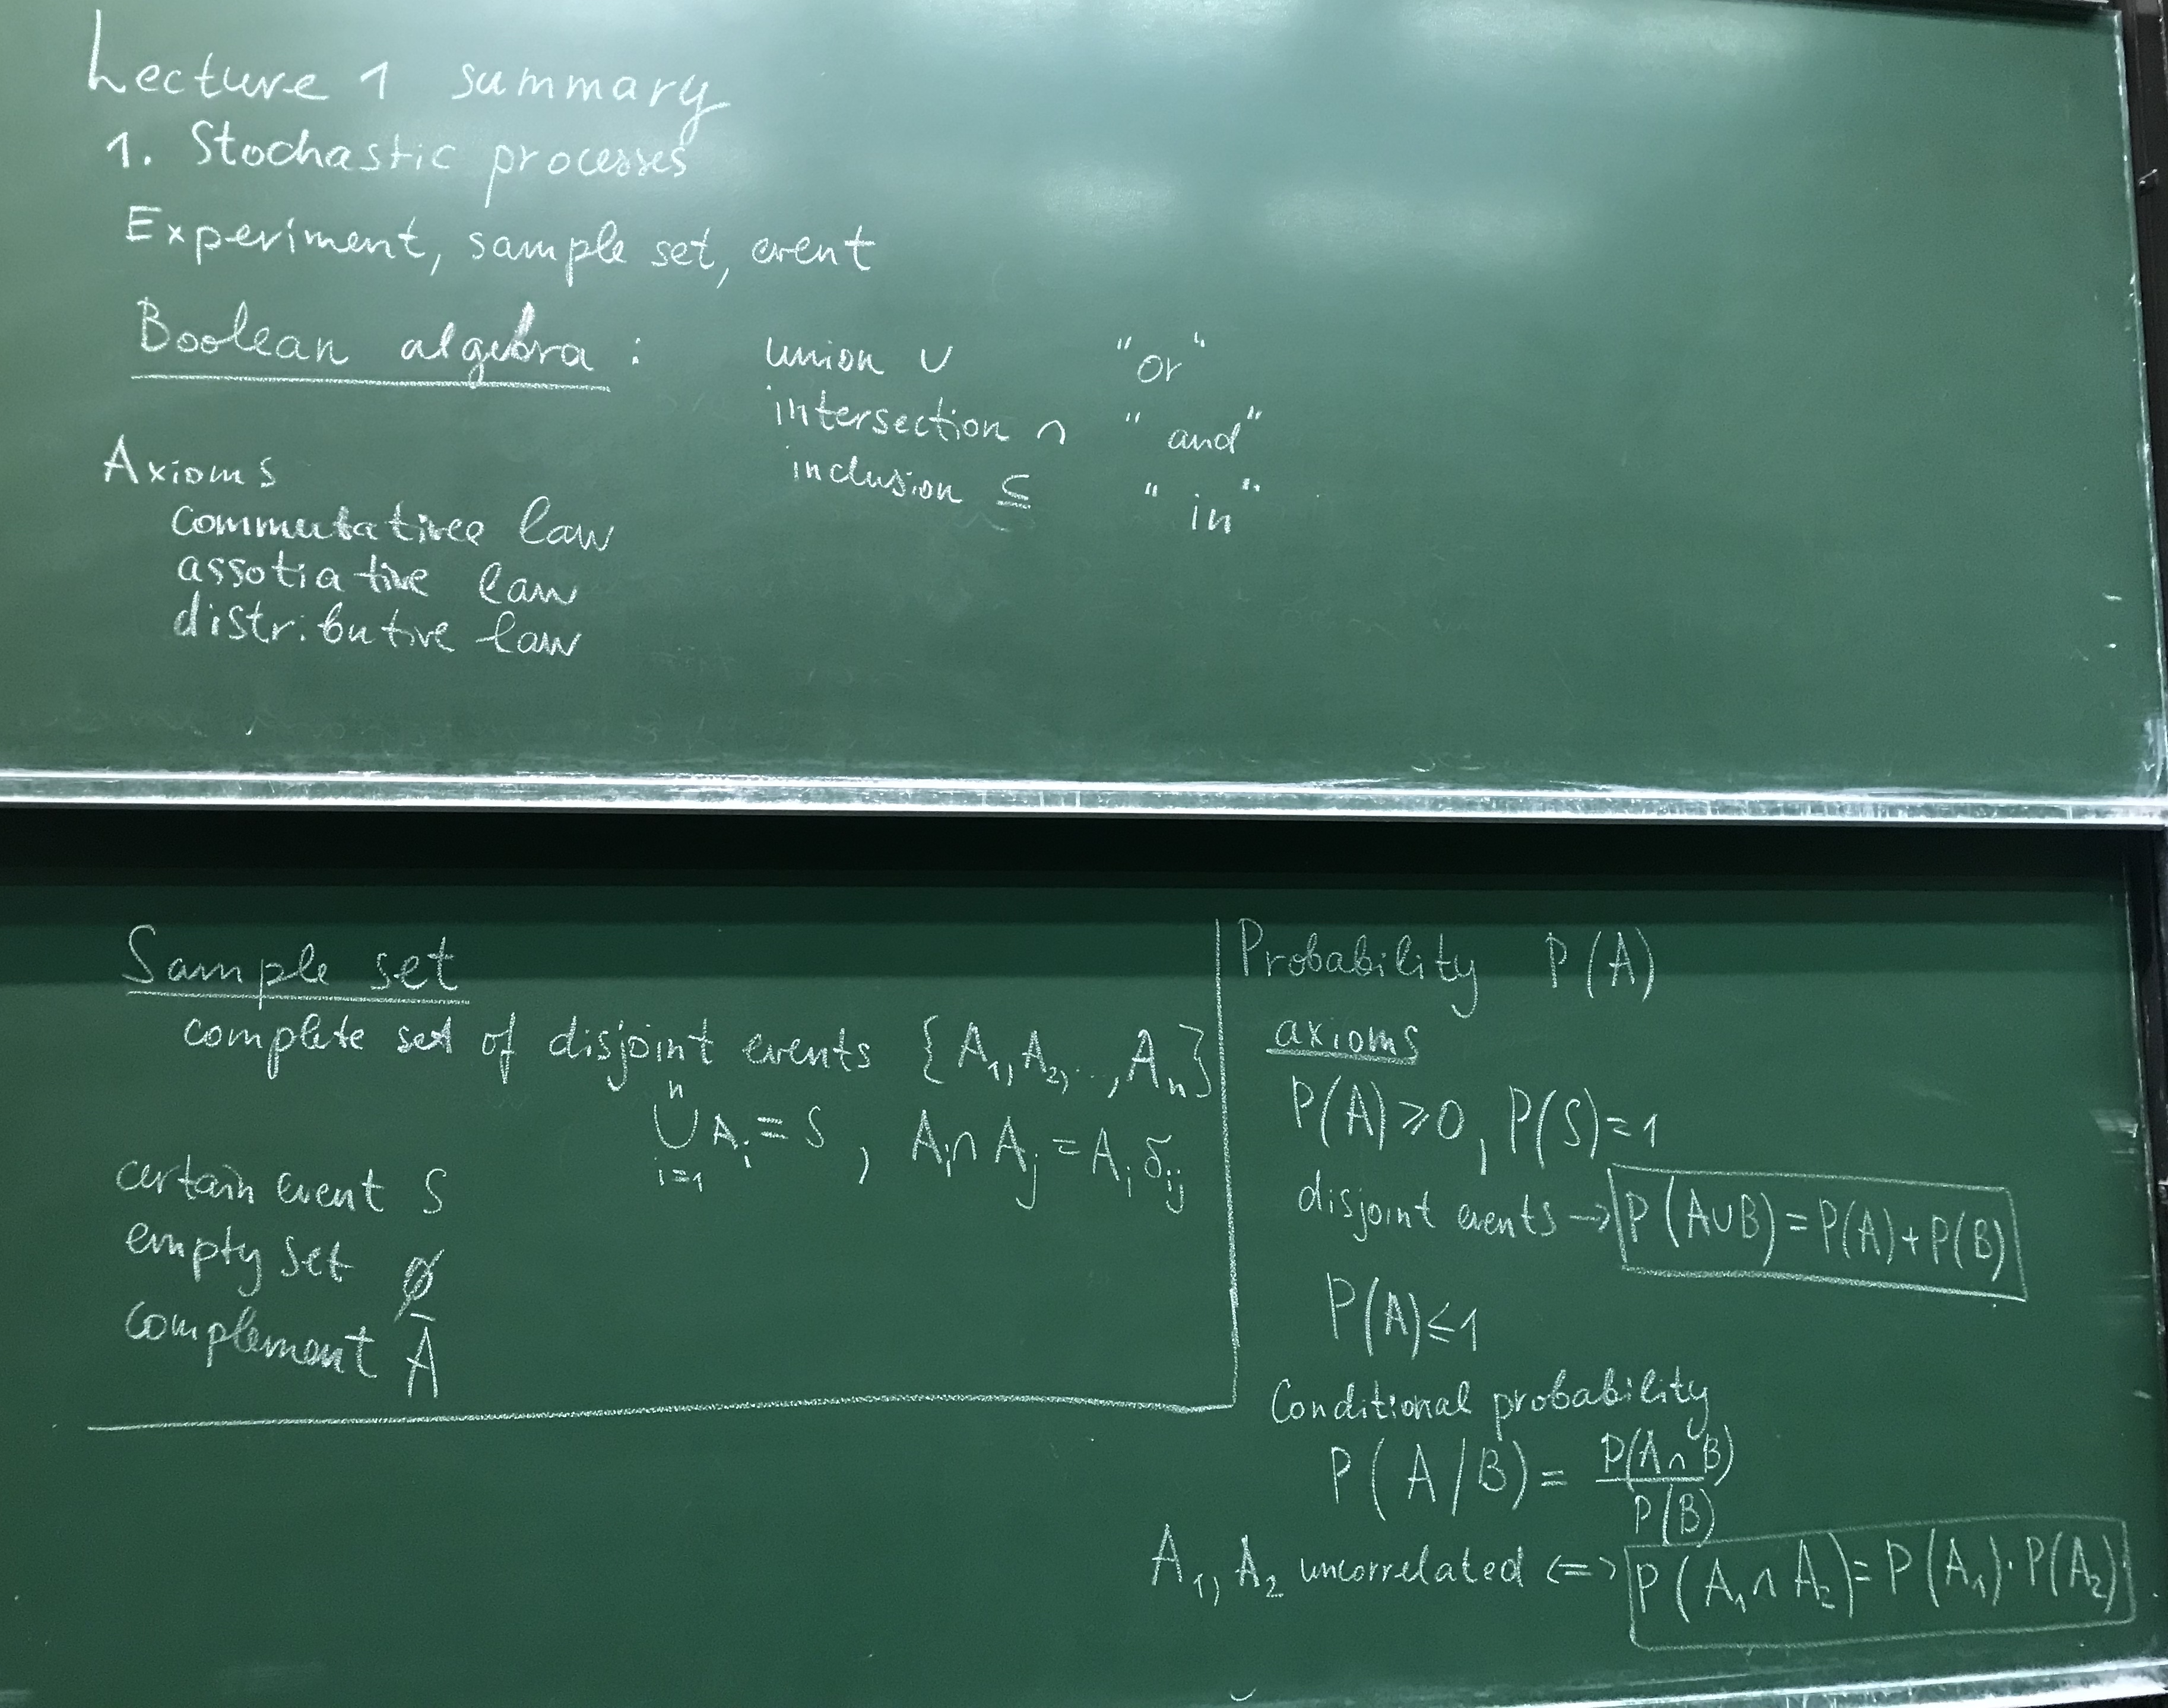 Lecture 1 summary
1. Stochastic processes
Experiment, sample set, event
Boolean algebra : union ∪ "or"
intersection ∩ "and"
inclusion ⊆ "in"
Axioms
commutative law
assotiative law
distributive law
Sample set
complete set of disjoint events {A₁, A₂, .., Aₙ}
⋃ᵢ₌₁ⁿ Aᵢ = S , Aᵢ ∩ Aⱼ = Aᵢ δᵢⱼ
certain event S
empty set ∅
complement Ā
Probability P(A)
axioms
P(A) ⩾ 0, P(S) = 1
disjoint events → P(A∪B) = P(A) + P(B)
P(A) ⩽ 1
Conditional probability
P(A/B) = P(A∩B) / P(B)
A₁, A₂ uncorrelated <=> P(A₁ ∩ A₂) = P(A₁) · P(A₂)